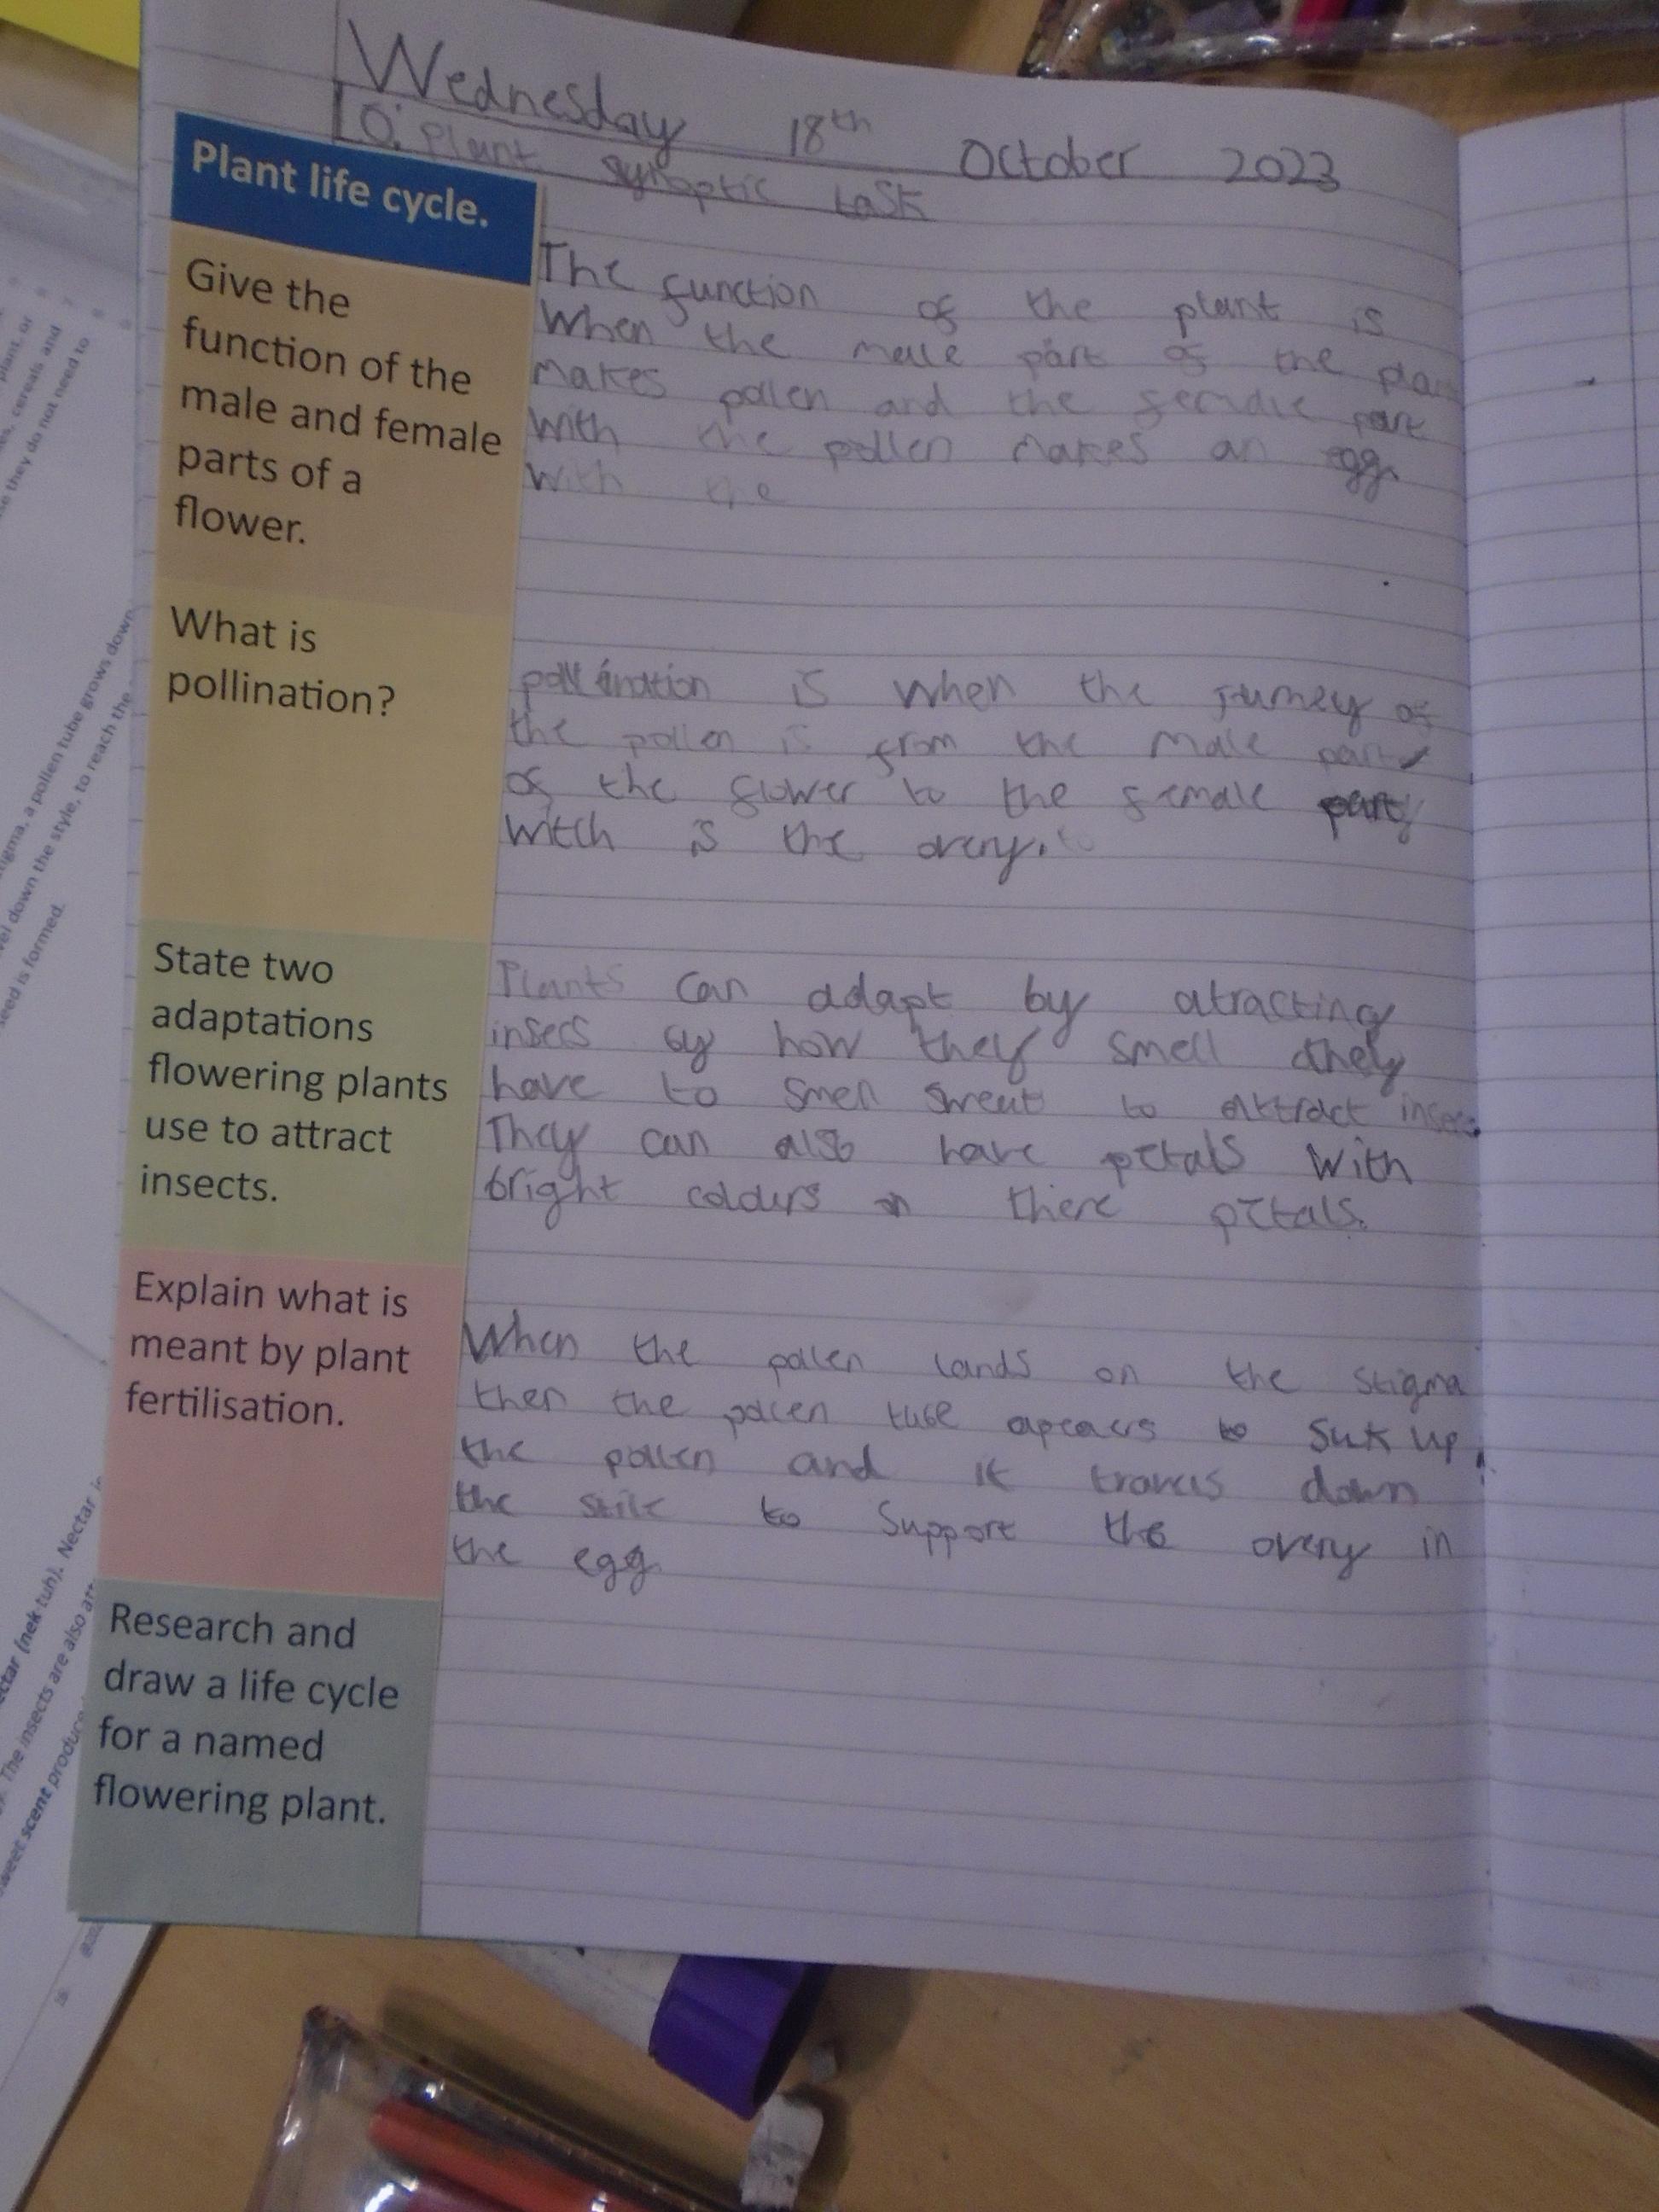 Wednesday 18th October 2023
LO: Plant synoptic task
Plant life cycle.
Give the
function of the
male and female
parts of a
flower.
The function of the plant is
When the male part of the plan
makes pollen and the female part
with the pollen makes an egg.
with the
What is
pollination?
pollination is when the jurney of
the pollen is from the male part
of the flower to the female part
witch is the overy.
State two
adaptations
flowering plants
use to attract
insects.
Plants can adapt by atracting
insecs by how they smell they
have to smell sweet to attract insecs.
They can also have petals with
bright colours on there petals.
Explain what is
meant by plant
fertilisation.
When the pollen lands on the stigma
then the pollen tube apears to suk up
the pollen and it travels down
the stile to support the overy in
the egg
Research and
draw a life cycle
for a named
flowering plant.
plant, or
cereals and
they do not need to
a pollen tube grows down
down the style, to reach the
seed is formed.
(nek-tuh). Nectar i
The insects are also
sweet scent produc